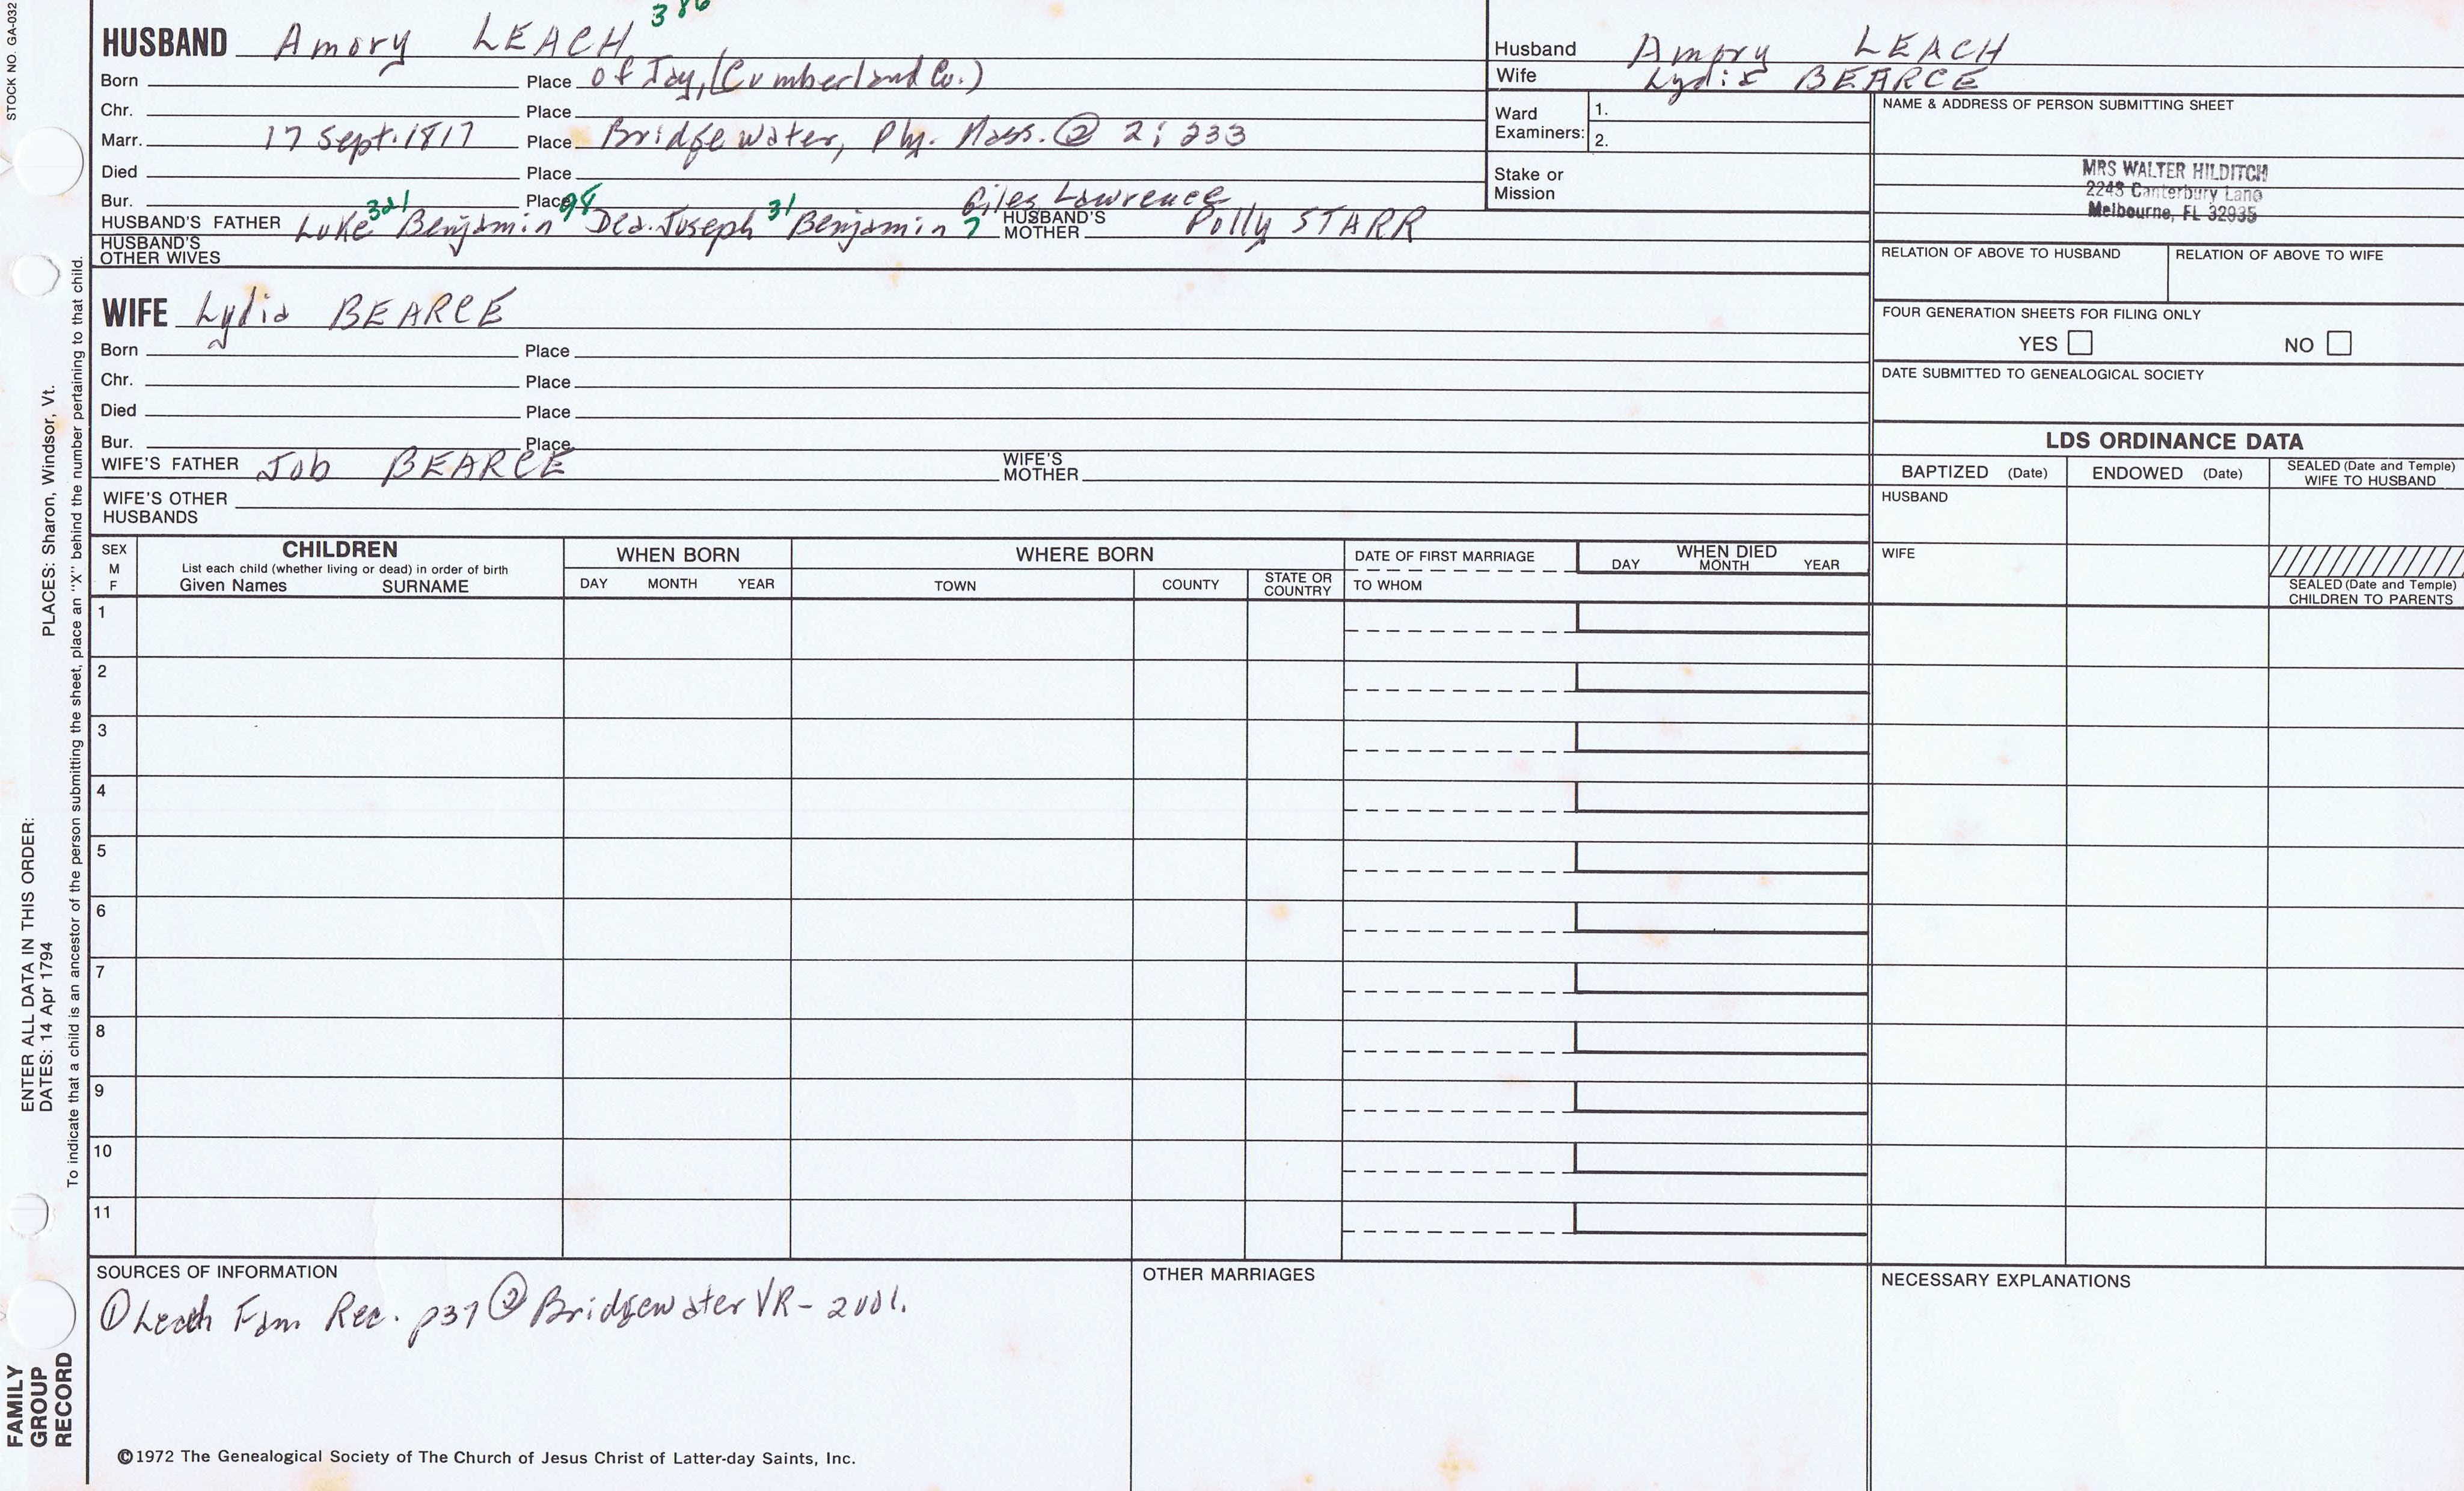 STOCK NO. GA-032
386
HUSBAND Amory LEACH
Born Place of Jay, (Cumberland Co.)
Chr. Place
Marr. 17 Sept. 1817 Place Bridgewater, Ply. Mass. ② 2; 233
Died Place
Bur. Place Giles Lawrence
HUSBAND'S FATHER Luke 321 Benjamin 98 Dea. Joseph 31 Benjamin 7 HUSBAND'S MOTHER Polly STARR
HUSBAND'S OTHER WIVES
Husband Amory LEACH
Wife Lydia BEARCE
Ward Examiners: 1.
2.
Stake or Mission
NAME & ADDRESS OF PERSON SUBMITTING SHEET
MRS WALTER HILDITCH
2248 Canterbury Lane
Melbourne, FL 32935
RELATION OF ABOVE TO HUSBAND RELATION OF ABOVE TO WIFE
FOUR GENERATION SHEETS FOR FILING ONLY
YES NO
DATE SUBMITTED TO GENEALOGICAL SOCIETY
WIFE Lydia BEARCE
Born Place
Chr. Place
Died Place
Bur. Place
WIFE'S FATHER Job BEARCE WIFE'S MOTHER
WIFE'S OTHER HUSBANDS
LDS ORDINANCE DATA
BAPTIZED (Date) ENDOWED (Date) SEALED (Date and Temple) WIFE TO HUSBAND
HUSBAND
WIFE
SEALED (Date and Temple) CHILDREN TO PARENTS
SEX M F
CHILDREN
List each child (whether living or dead) in order of birth
Given Names SURNAME
WHEN BORN
DAY MONTH YEAR
WHERE BORN
TOWN COUNTY STATE OR COUNTRY
DATE OF FIRST MARRIAGE
TO WHOM
WHEN DIED
DAY MONTH YEAR
1
2
3
4
5
6
7
8
9
10
11
SOURCES OF INFORMATION
① Leach Fam Rec. p37 ② Bridgewater VR - 2 vol.
OTHER MARRIAGES
NECESSARY EXPLANATIONS
©1972 The Genealogical Society of The Church of Jesus Christ of Latter-day Saints, Inc.
FAMILY GROUP RECORD
ENTER ALL DATA IN THIS ORDER:
DATES: 14 Apr 1794 PLACES: Sharon, Windsor, Vt.
To indicate that a child is an ancestor of the person submitting the sheet, place an "X" behind the number pertaining to that child.